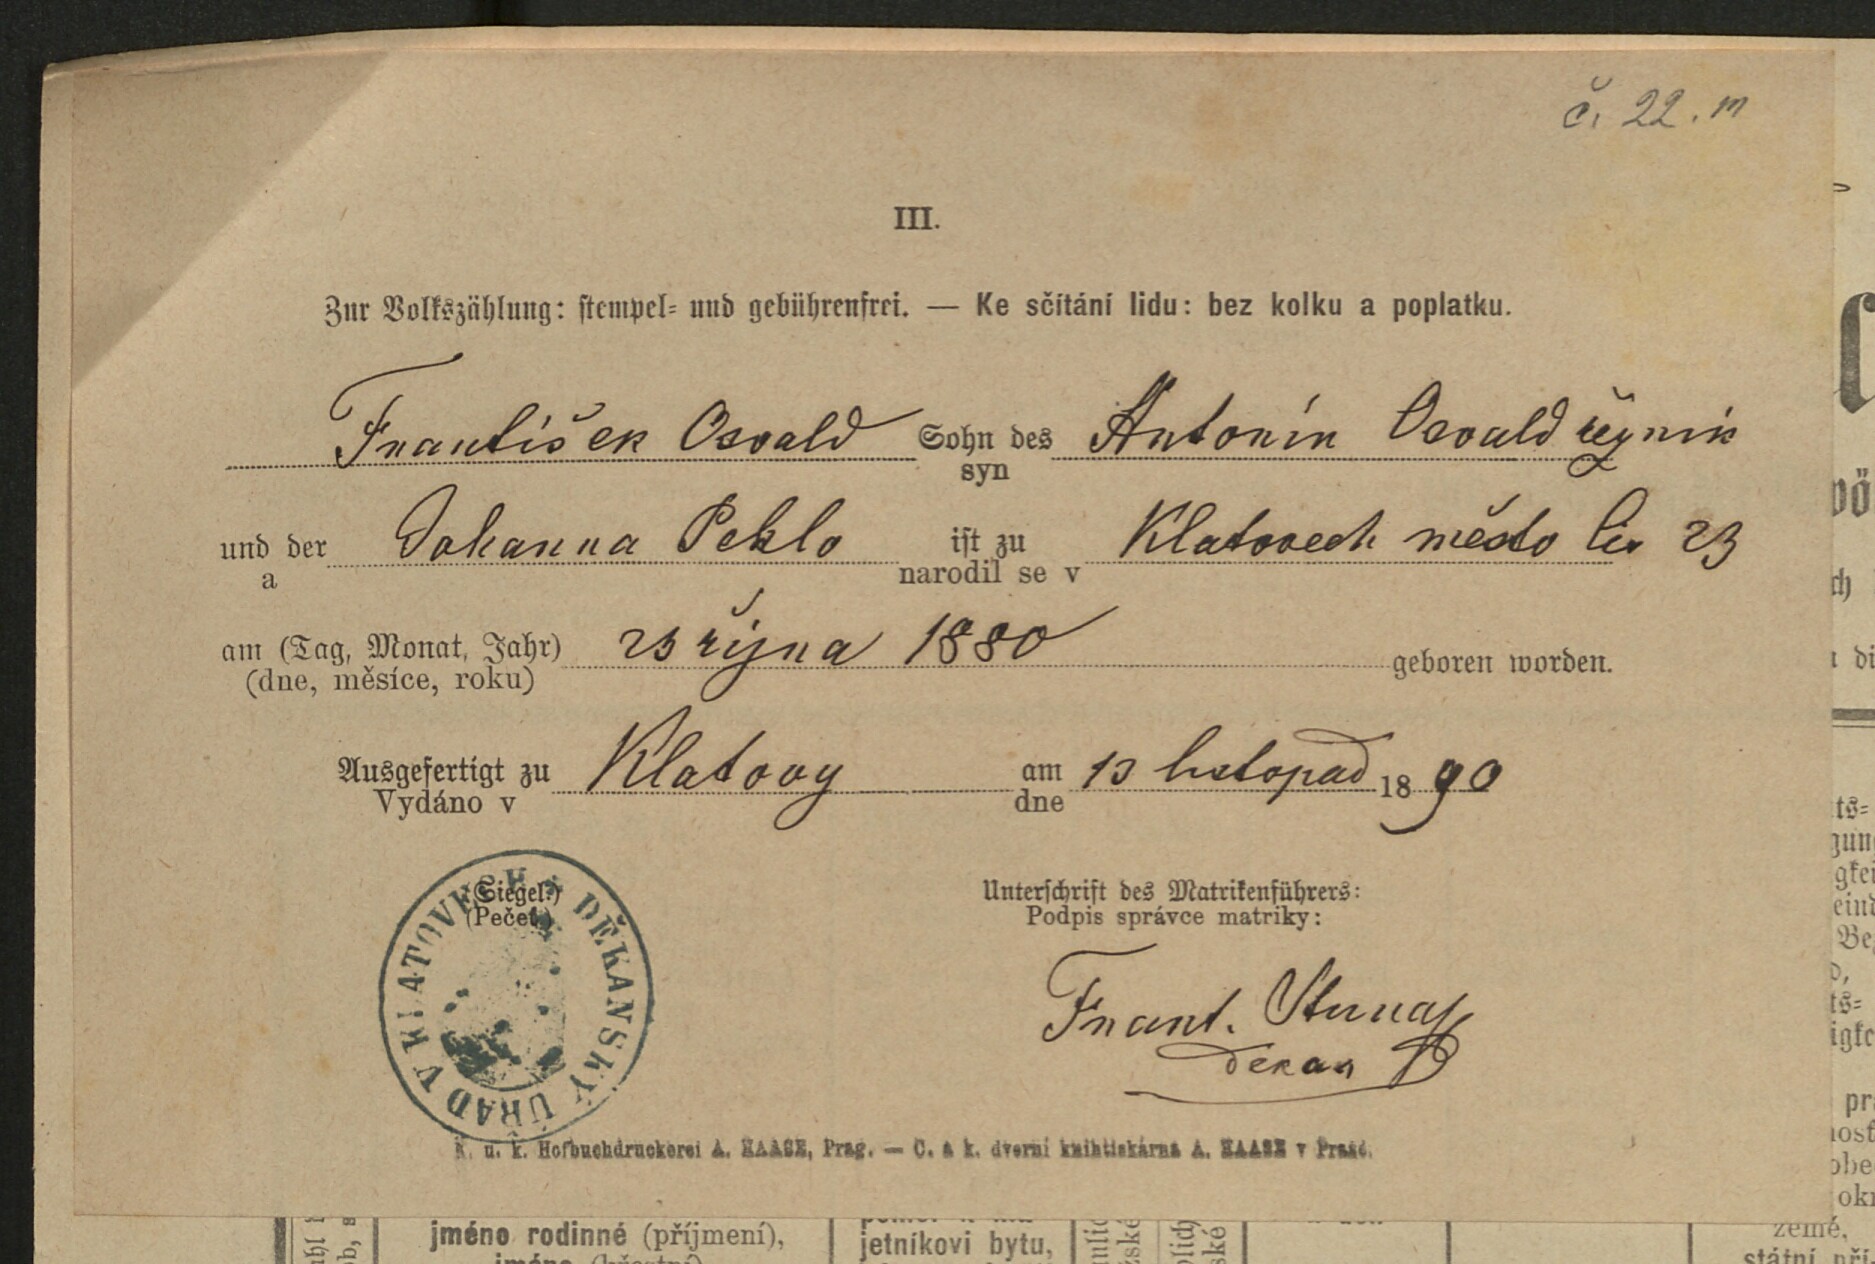 č. 22. m
III.
Zur Volkszählung: stempel- und gebührenfrei. — Ke sčítání lidu: bez kolku a poplatku.
František Osvald Sohn des Antonín Osvald řezník
syn
und der Johanna Peklo ist zu Klatovech město čis 23
a narodil se v
am (Tag, Monat, Jahr) 23 října 1880 geboren worden.
(dne, měsíce, roku)
Ausgefertigt zu Klatovy am 13 listopad 1890
Vydáno v dne
(Siegel.) Unterschrift des Matrikenführers:
(Pečeť.) Podpis správce matriky:
DĚKANSKÝ ÚŘAD V KLATOVECH
Frant.
děkan
K. u. k. Hofbuchdruckerei A. HAASE, Prag. — C. a k. dvorní knihtiskárna A. HAASE v Praze.
jméno rodinné (příjmení),
jetníkovi bytu,
země,